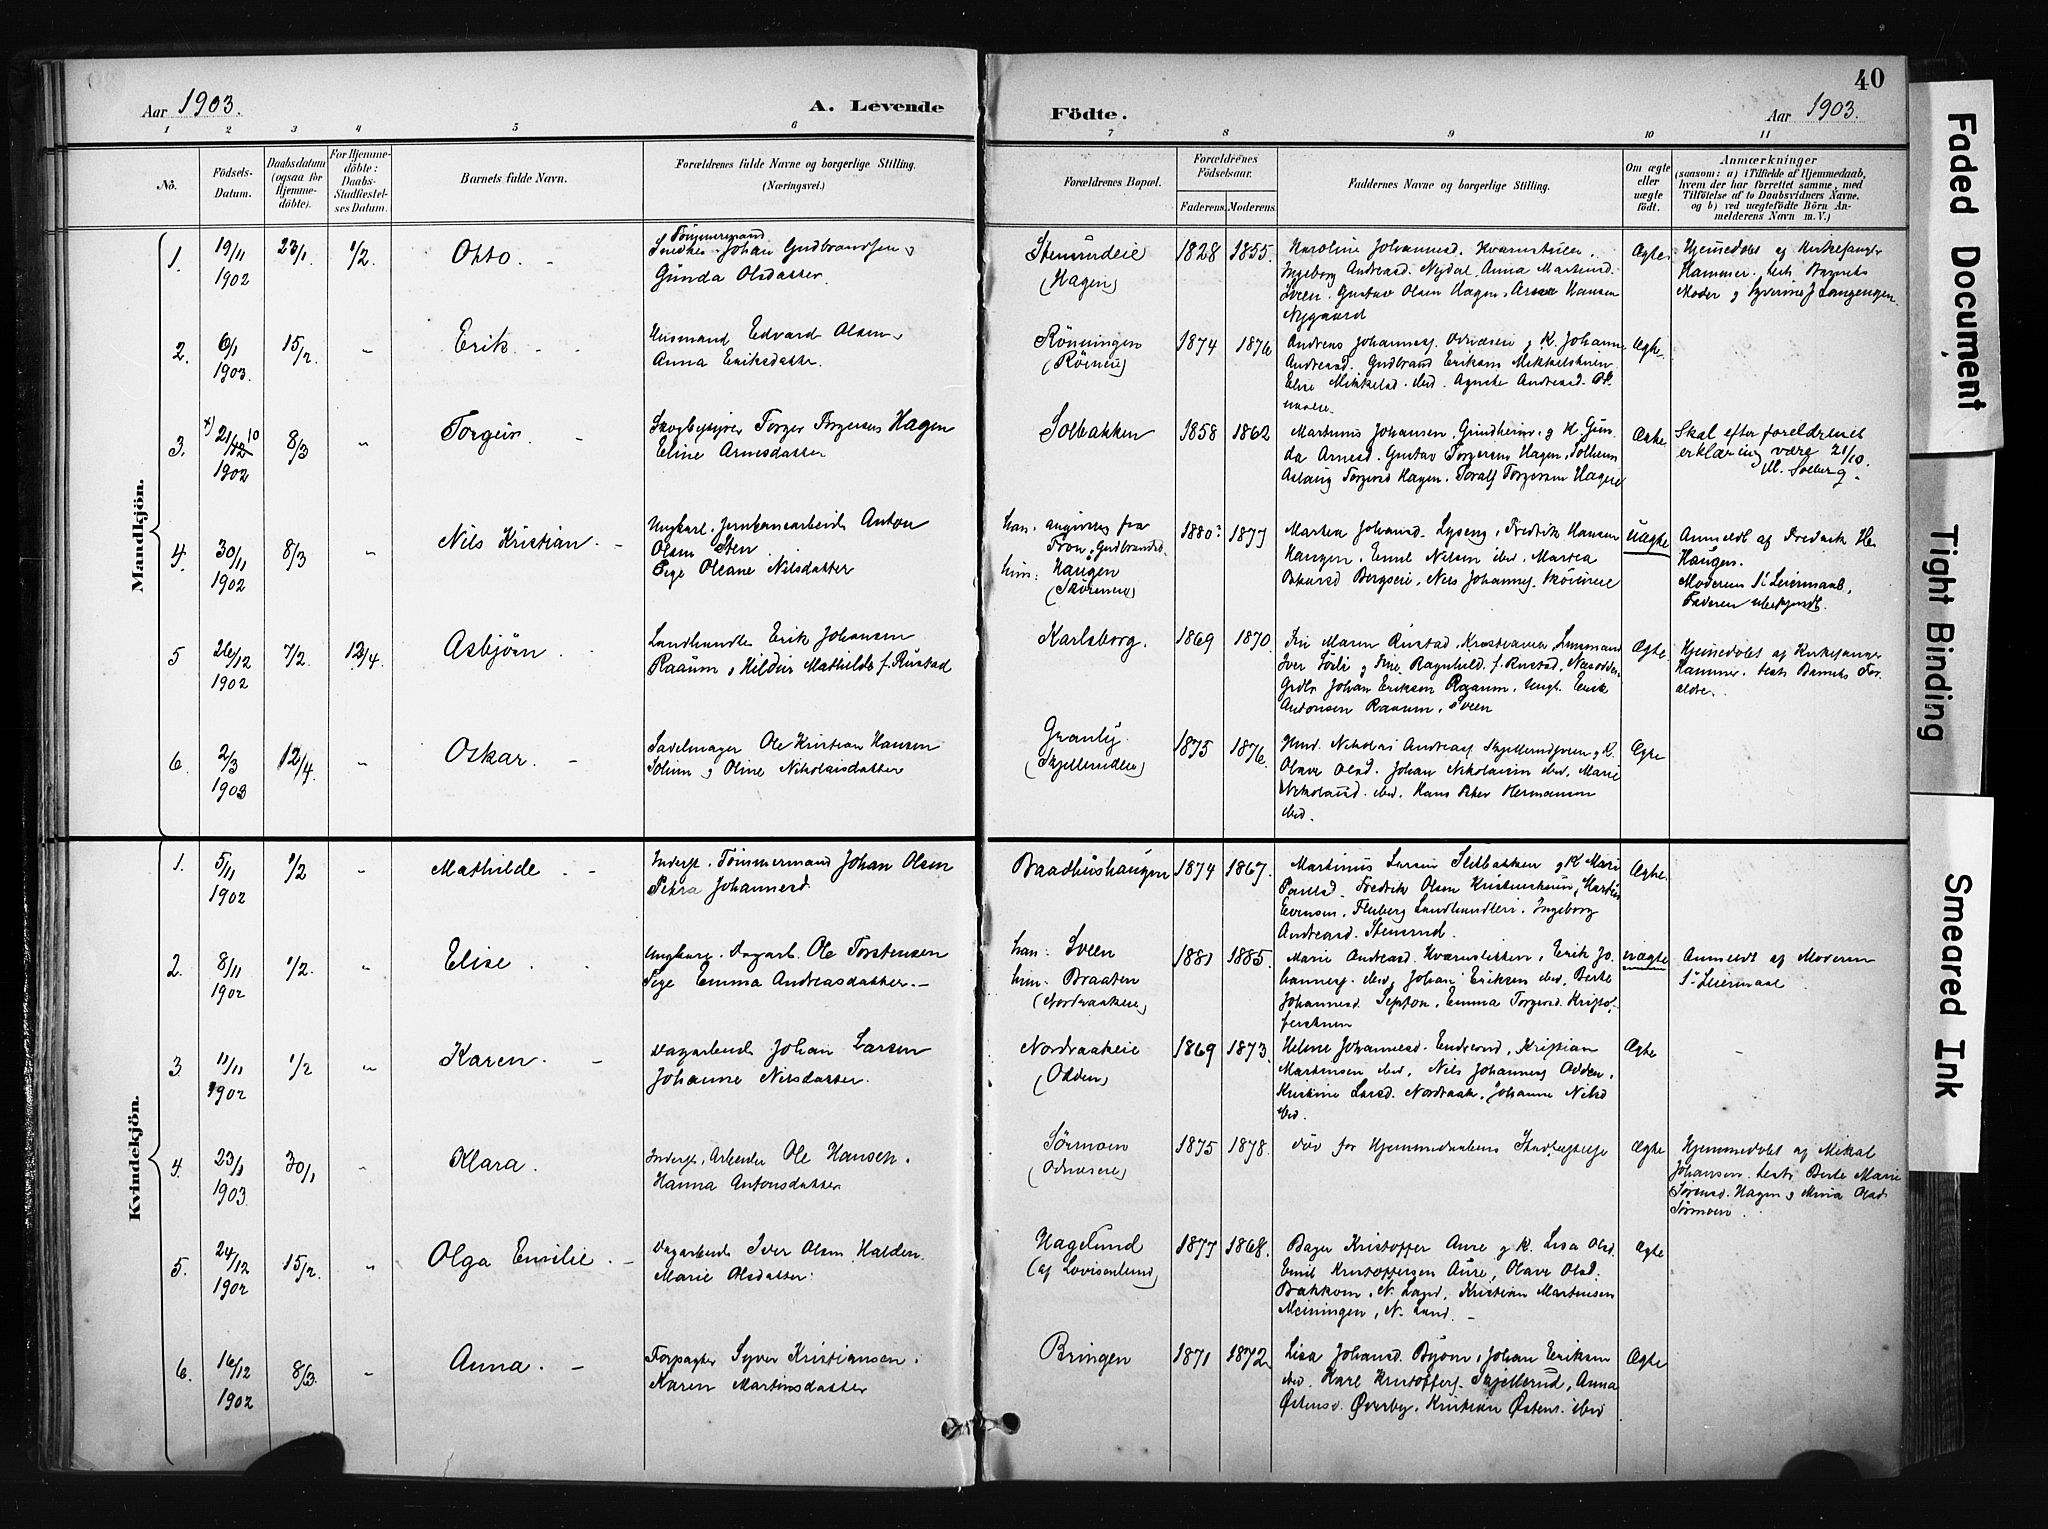 40
Aar 1903.
A. Levende
Födte.
Aar 1903.
1 2 3 4 5 6 7 8 9 10 11
No.
Födsels-
Datum.
Daabsdatum
(ogsaa for
Hjemme-
döbte).
For Hjemme-
döbte:
Daabs-
Stadfæstel-
ses Datum.
Barnets fulde Navn.
Forældrenes fulde Navne og borgerlige Stilling.
(Næringsvei.)
Forældrenes Bopæl.
Forældrenes
Födselsaar.
Faderens. Moderens.
Faddernes Navne og borgerlige Stilling.
Om ægte
eller
uægte
født.
Anmærkninger
(saasom: a) i Tilfælde af Hjemmedaab,
hvem der har forrettet samme, med
Tilföielse af to Daabsvidners Navne.
og b) ved uægtefødte Börn An-
melderens Navn m. V.)
Mandkjön.
1. 19/11 1902 23/1 1/2. Otto.
Tömmermand
Snedker Johan Gudbrandsen
Gunda Olsdatter.
Stensrudeie
(Hagen)
1828 1855.
Karoline Johannesd.
Ingeborg Andreasd. Nejdal, Anna
Sveen. Gustav Olsen Hagen, Hansen
Nygaard
Ægte
Hjemmedøbt af Kirkesanger
Hammer. test: Barnets
Moder og
2. 6/1 1903. 15/2. „ Erik.
Husmand Edvard Olsen
Anna Eriksdatter.
Rönningen
1874 1876
Andreas Johanness. K. Johanne
Andreasd. Gudbrand Eriksen
Elise Mikkelsd. ibid. Agnethe Andreasd.
Ægte.
3. x) 21/10 1902 8/3 „ Torgeir.
Torger Torgersen Hagen
Eline Arnesdatter
Solbakken
1858 1862
Martinus Johansen. Grindheim og K. Gun-
da Arnesd. Gustav Torgersen Hagen, Solheim
Aslaug Torgersd Hagen. Toralf Torgersen Hagen
Ægte
Skal efter foreldrenes
erklæring være 21/10.
4. 30/11 1902 8/3 „ Nils Kristian.
Ungkarl. Jernbanearbeid. Anton
Olsen Sten
Pige Oleane Nilsdatter
han: angivelig fra
Fron, Gudbrandsd.
hun: Haugen
1880? 1877
Martea Johansd. Lyseng, Fredrik Hansen
Haugen, Emil Nilsen ibid. Martea
Bergseie, Nils Johannes.
uægte
Anmeldt af Fredrik
Haugen.
Moderens 1ste Leiermaal,
Faderen ubekjendt.
5 26/12 1902 7/2. 12/4. Asbjörn
Landhandler Erik Johansen
Raaum og Hildur Mathilde f. Rustad
Karlsborg.
1869 1870.
Maren Rustad,
Iver og Ragnhild f. Rustad,
Grdbr. Johan Eriksen Raaum. Ungk. Erik
Antonsen Raaum. Sveen
Ægte.
Hjemmedøbt af Kirkesanger
Hammer. test: Barnets For-
ældre.
6. 2/3 1903 12/4. „ Oskar.
Sadelmager Ole Kristian Hansen
Solum og Oline Nikolaisdatter
Granly.
(Skjellerudeie)
1875 1876.
Hmd. Nikolai Andreass. K.
Olave Olsd. Johan Nikolaisen ibid. Marie
Nikolaisd. ibid. Hans Peter Hermansen
ibid.
Ægte
Kvindekjön.
1. 5/11 1902 1/2 „ Mathilde
Inderst. Tömmermand Johan Olsen
Petra Johannesd.
Braadhushaugen
1874 1867.
Martinus Larsen Sletbakken og K. Mari
Paulsd. Fredrik Olsen
Evensen, Fluberg Landhandleri. Ingeborg
Andreasd. Stensrud.
Ægte.
2. 8/11 1902 1/2. „ Elise
Ungkarl. Dagarb. Ole Torstensen
Pige Emma Andreasdatter.
han: Sveen
hun: Braaten
(Nordraakeie)
1881 1885.
Marie Andreasd. Kværnslitten, Erik Jo-
hanness. ibid. Johan Eriksen ibid, Berthe
Johannesd. Emma Torgersd.
uægte
Anmeldt af Moderen
1ste Leiermaal
3. 11/11 1902 1/2 „ Karen.
Dagarbeid. Johan Larsen
Johanne Nilsdatter.
Nordraakeie
(Odden)
1869 1873.
Helene Johannesd. Endrerud, Kristian
Martinsen ibid, Nils Johanness Odden,
Kristine Larsd. Nordraak. Johanne Nilsd
ibid.
Ægte
4. 23/1 1903. 30/1 „ Klara.
Inderst. Arbeider Ole Hansen.
Hanna Antonsdatter
Sørmoen
1875 1878.
död før Hjemmedaabens Stadfæstelse
Ægte
Hjemmedøbt af Mikal
Johansen. test: Berte Marie
Sørensd. Hagen og Mina Olsd
Sørmoen.
5. 24/12 1902 15/2. „ Olga Emilie.
Dagarbeid. Iver Olsen Halden
Marie Olsdatter.
Hagelund
(af Lovisenlund)
1877 1868.
Bager Kristoffer Aure og K. Lisa Olsd.
Emil Kristoffersen Aure, Olave Olsd.
Bakkom, N. Land, Kristian Martinsen
Meiningen, N. Land.
Ægte
6. 16/12 1902 8/3. „ Anna.
Forpagter Syver Kristiansen.
Karen Martinsdatter
Bringen
1871 1872.
Lisa Johansd. Byom, Johan Eriksen
ibid. Karl Kristoffers. Skjellerud, Anna
Østensd. Øverby, Kristian Østens. ibid
Ægte
Faded Document
Tight Binding
Smeared Ink